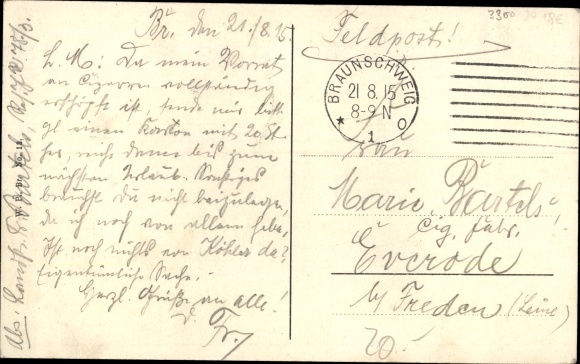 Br. den 21./8.15.
L. M: Da mein Vorrat
an Cigarren vollständig
erschöpft ist sende mir bitte
gl einen Karton mit 20 St
her, reiche damit bis zum
nächsten Urlaub. Sonstiges
brauchst du nicht beizulegen,
da ich noch von allem habe.
Ist noch nichts von Köbler da?
Eigentümliche Sache.
Herzl. Grüße an alle!
d. Fr.
Abs. Landst. Bartels,
Feldpost!
3300
BRAUNSCHWEIG
21 8.15
8-9 N
* 1 o
Frau
Marie Bartels,
Cig. fabr.
Everode
b/ Freden (Leine)
20.-